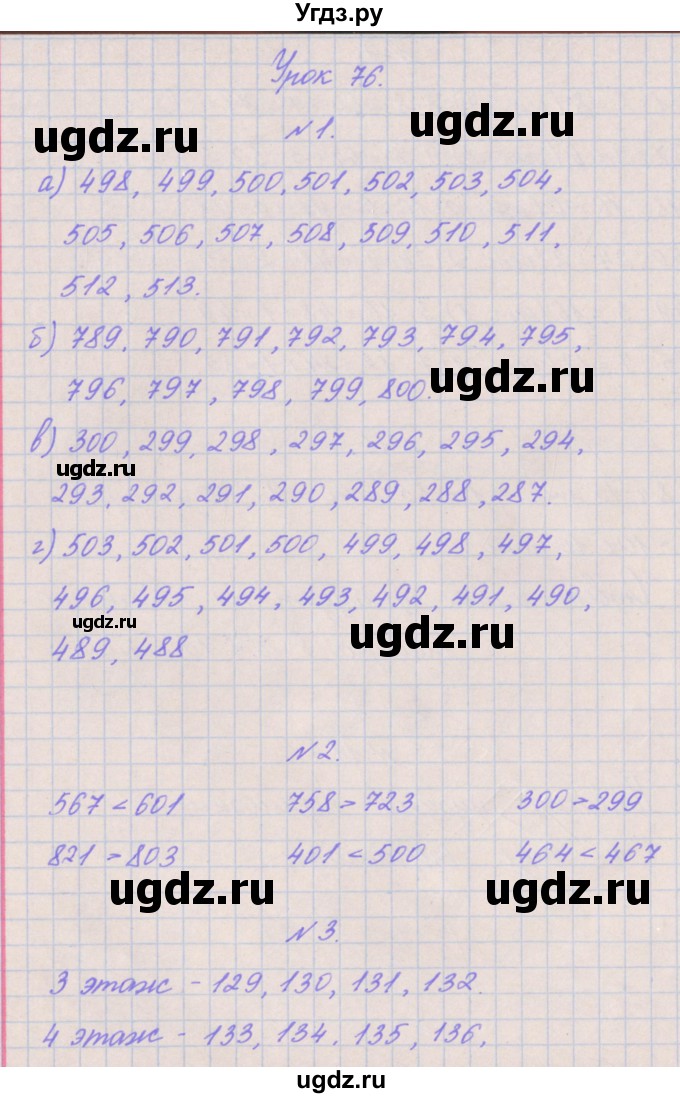 Угдз.ру
Урок 76.
ugdz.ru
ugdz.ru
№1.
а) 498, 499, 500, 501, 502, 503, 504,
505, 506, 507, 508, 509, 510, 511,
512, 513.
б) 789, 790, 791, 792, 793, 794, 795,
ugdz.ru
796, 797, 798, 799, 800.
в) 300, 299, 298, 297, 296, 295, 294,
ugdz.ru
293, 292, 291, 290, 289, 288, 287.
г) 503, 502, 501, 500, 499, 498, 497,
496, 495, 494, 493, 492, 491, 490,
ugdz.ru
ugdz.ru
489, 488
№2.
567 < 601 758 > 723 300 > 299
821 > 803 401 < 500 464 < 467
ugdz.ru
ugdz.ru
№3.
3 этаж - 129, 130, 131, 132.
4 этаж - 133, 134, 135, 136,
ugdz.ru